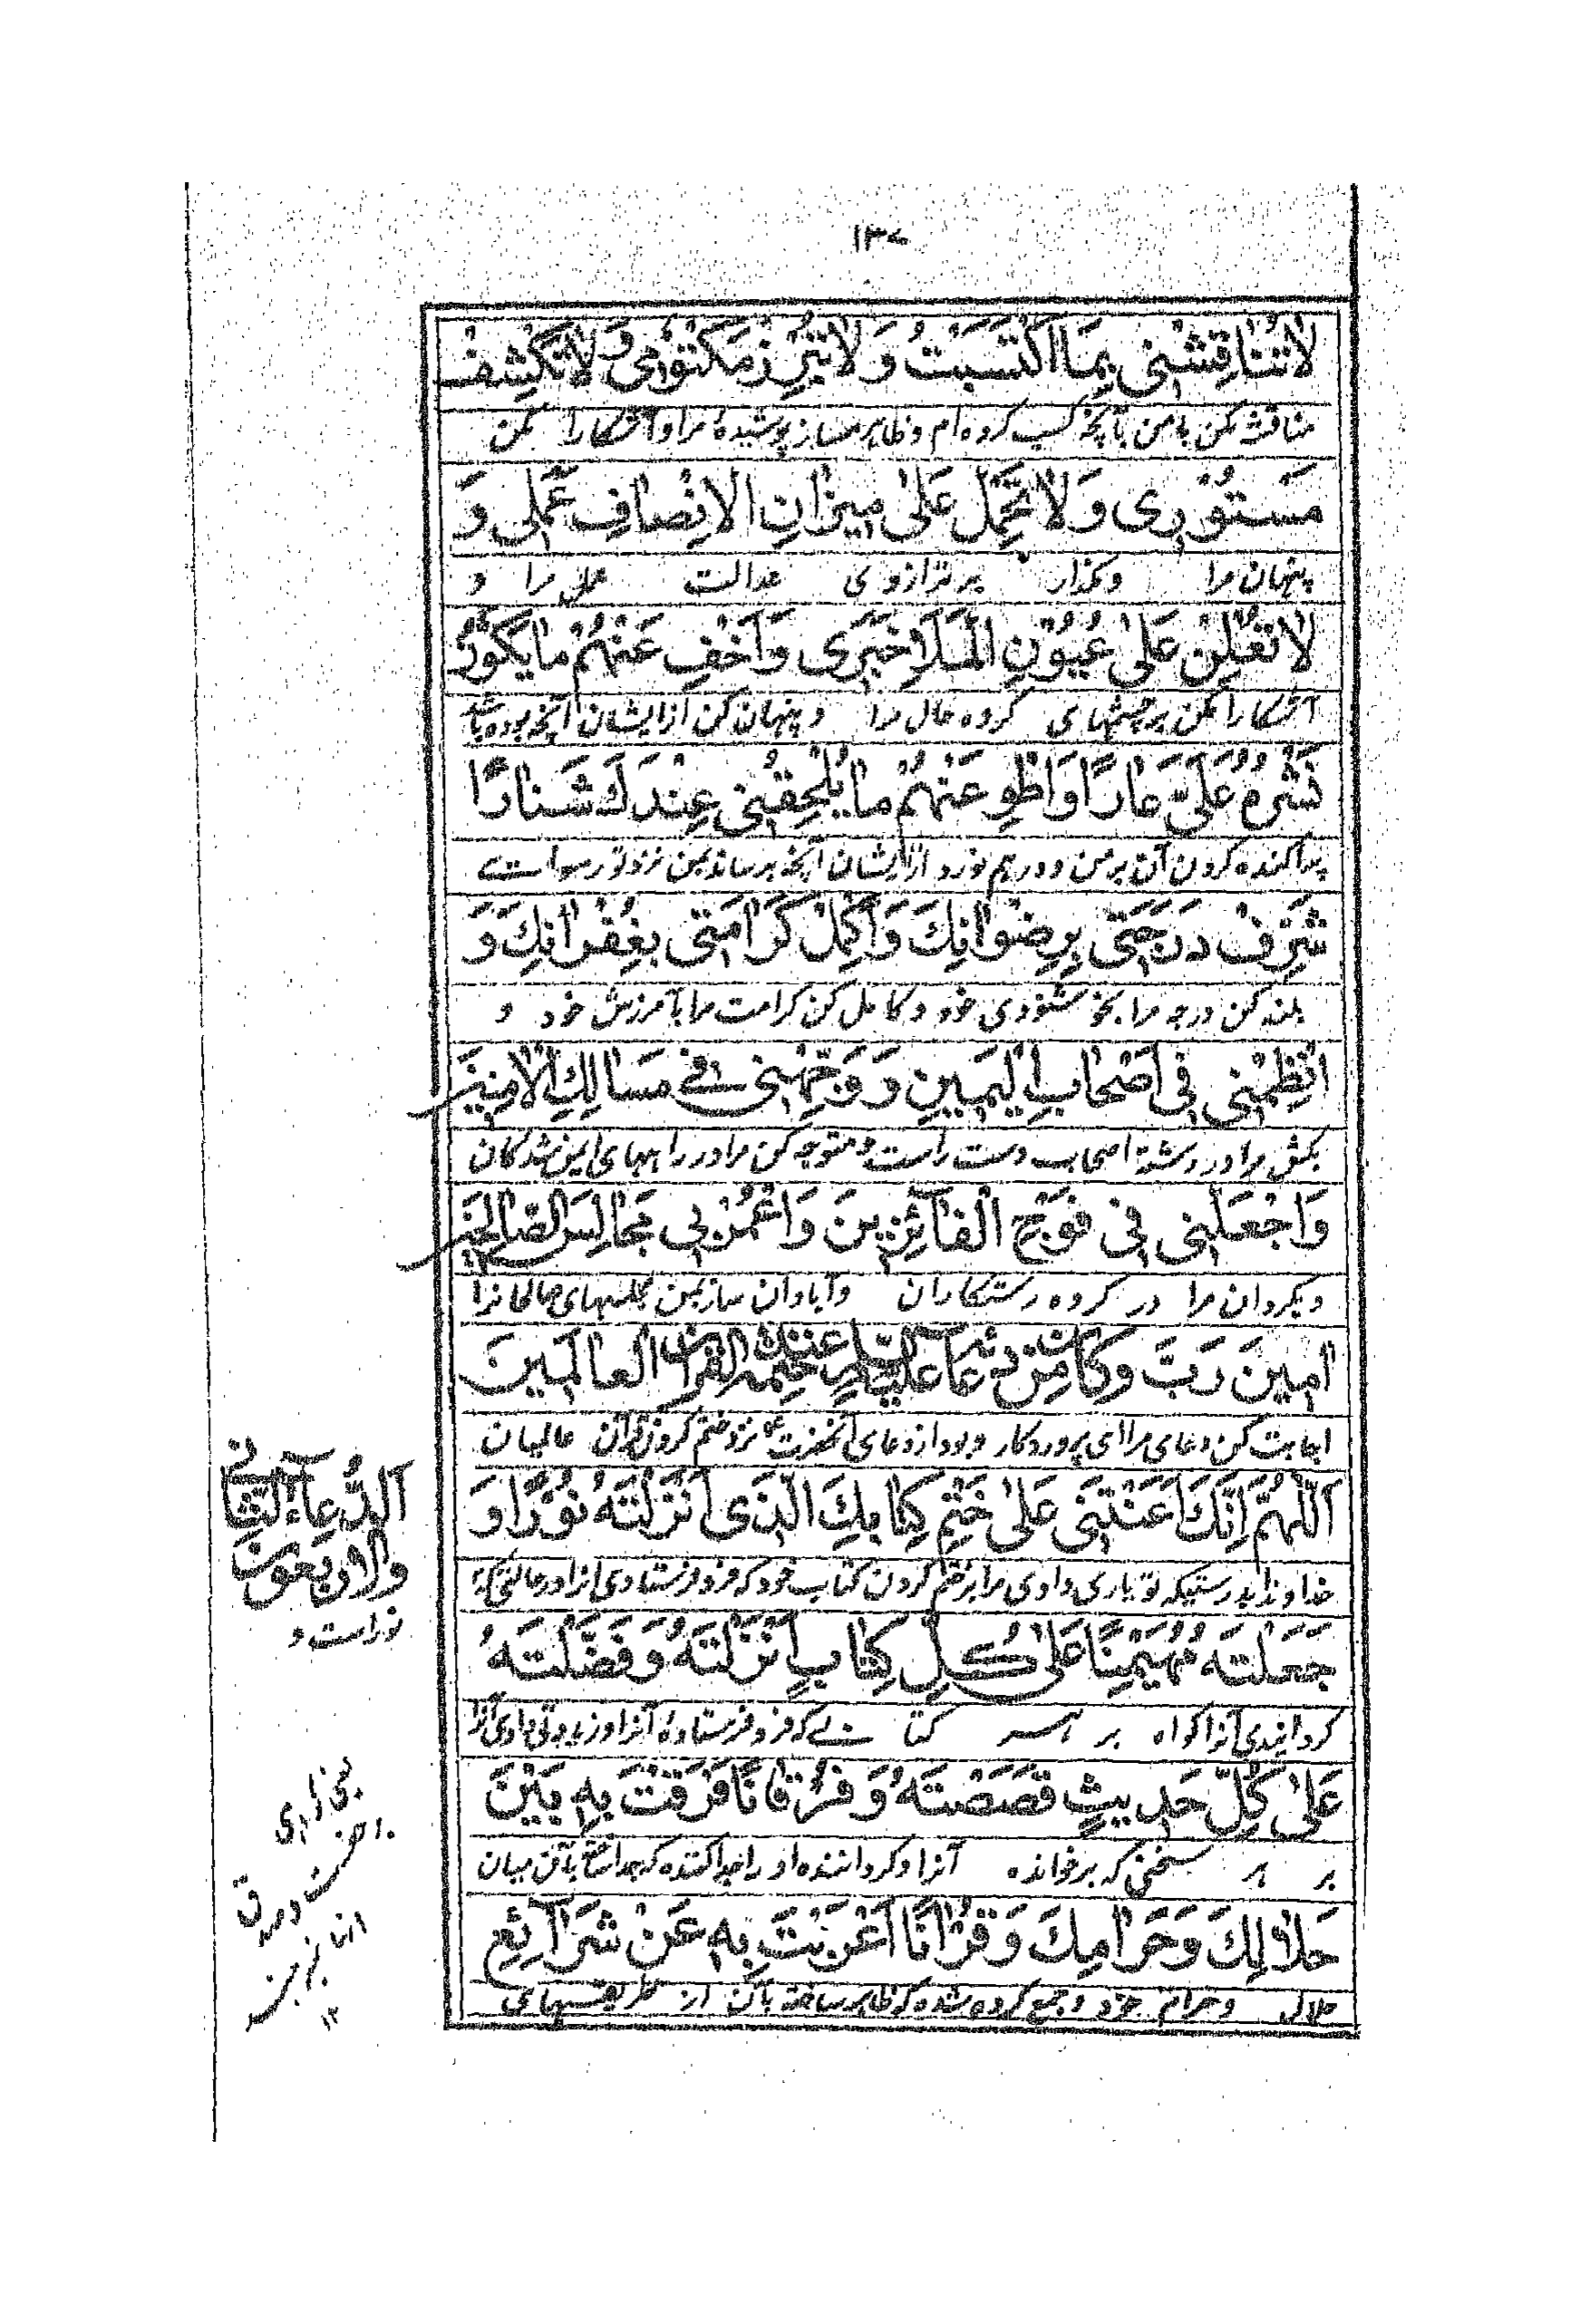 ۱۳۷
لَا تُنَاقِشْنِی بِمَا اکْتَسَبْتُ وَ لَا تُبْرِزْ مَکْتُومِی وَ لَا تَکْشِفْ
مناقشه مکن با من بآنچه کسب کرده ام و ظاهر مساز پوشیدهٔ مرا و آشکارا مکن
مَسْتُورِی وَ لَا تَحْمِلْ عَلَى مِیزَانِ الْاِنْصَافِ عَمَلِی وَ
پنهان مرا و مگذار بر ترازوی عدالت عمل مرا و
لَا تُعْلِنْ عَلَى عُیُونِ الْمَلَاِ خَبَرِی وَ اَخْفِ عَنْهُمْ مَا یَکُونُ
آشکارا مکن بر چشمهای گروه حال مرا و پنهان کن از ایشان آنچه بوده باشد
نَشْرُهُ عَلَیَّ عَارًا وَ اطْوِ عَنْهُمْ مَا یُلْحِقُنِی عِنْدَكَ شَنَارًا
پراکنده کردن آن بر من و درهم نورد از ایشان آنچه برساند بمن نزد تو رسوائے
شَرِّفْ دَرَجَتِی بِرِضْوَانِكَ وَ اَکْمِلْ کَرَامَتِی بِغُفْرَانِكَ وَ
بلند کن درجه مرا بخوشنودی خود و کامل کن کرامت مرا بآمرزش خود و
انْظِمْنِی فِی اَصْحَابِ الْیَمِینِ وَ وَجِّهْنِی فِی مَسَالِكِ الْاٰمِنِینَ
بکش مرا در رشتهٔ اصحاب دست راست و متوجه کن مرا در راههای ایمن شدگان
وَ اجْعَلْنِی فِی فَوْجِ الْفَائِزِینَ وَ اعْمُرْ بِی مَجَالِسَ الصَّالِحِینَ
و بگردان مرا در گروه رستگاران و آبادان ساز بمن مجلسهای صالحانرا
اٰمِینَ رَبَّ الْعَالَمِینَ وَ کَانَ مِنْ دُعَائِهِ عَلَیْهِ السَّلَامُ عِنْدَ خَتْمِهِ الْقُرْاٰنَ
اجابت کن دعای مرا ای پروردگار عالمیان و بود از دعای آنحضرت ع نزد ختم کردن قرآن
اَللّٰهُمَّ اِنَّكَ اَعَنْتَنِی عَلَى خَتْمِ کِتَابِكَ الَّذِی اَنْزَلْتَهُ نُورًا وَ
خداوندا بدرستیکه تو یاری دادی مرا بر ختم کردن کتاب خود که فرو فرستادی آنرا در حالتی که
اَلدُّعَاءُ الثَّانِی
وَ الْاَرْبَعُونَ
نور است و
جَعَلْتَهُ مُهَیْمِنًا عَلَى کُلِّ کِتَابٍ اَنْزَلْتَهُ وَ فَضَّلْتَهُ
گردانیدی آنرا گواه بر همه کتابے که فرو فرستادهٔ آنرا و زیادتی دادی آنرا
عَلَى کُلِّ حَدِیثٍ قَصَصْتَهُ وَ فُرْقَانًا فَرَقْتَ بِهِ بَیْنَ
بر هر سخنی که برخوانده آنرا و گردانندهٔ او را جدا کننده که جدا ساختی بآن میان
حَلَالِكَ وَ حَرَامِكَ وَ قُرْاٰنًا اَعْرَبْتَ بِهِ عَنْ شَرَائِعِ
حلال و حرام خود و جمع کرده شده که ظاهر ساختهٔ بآن از طریقهای
۱۲